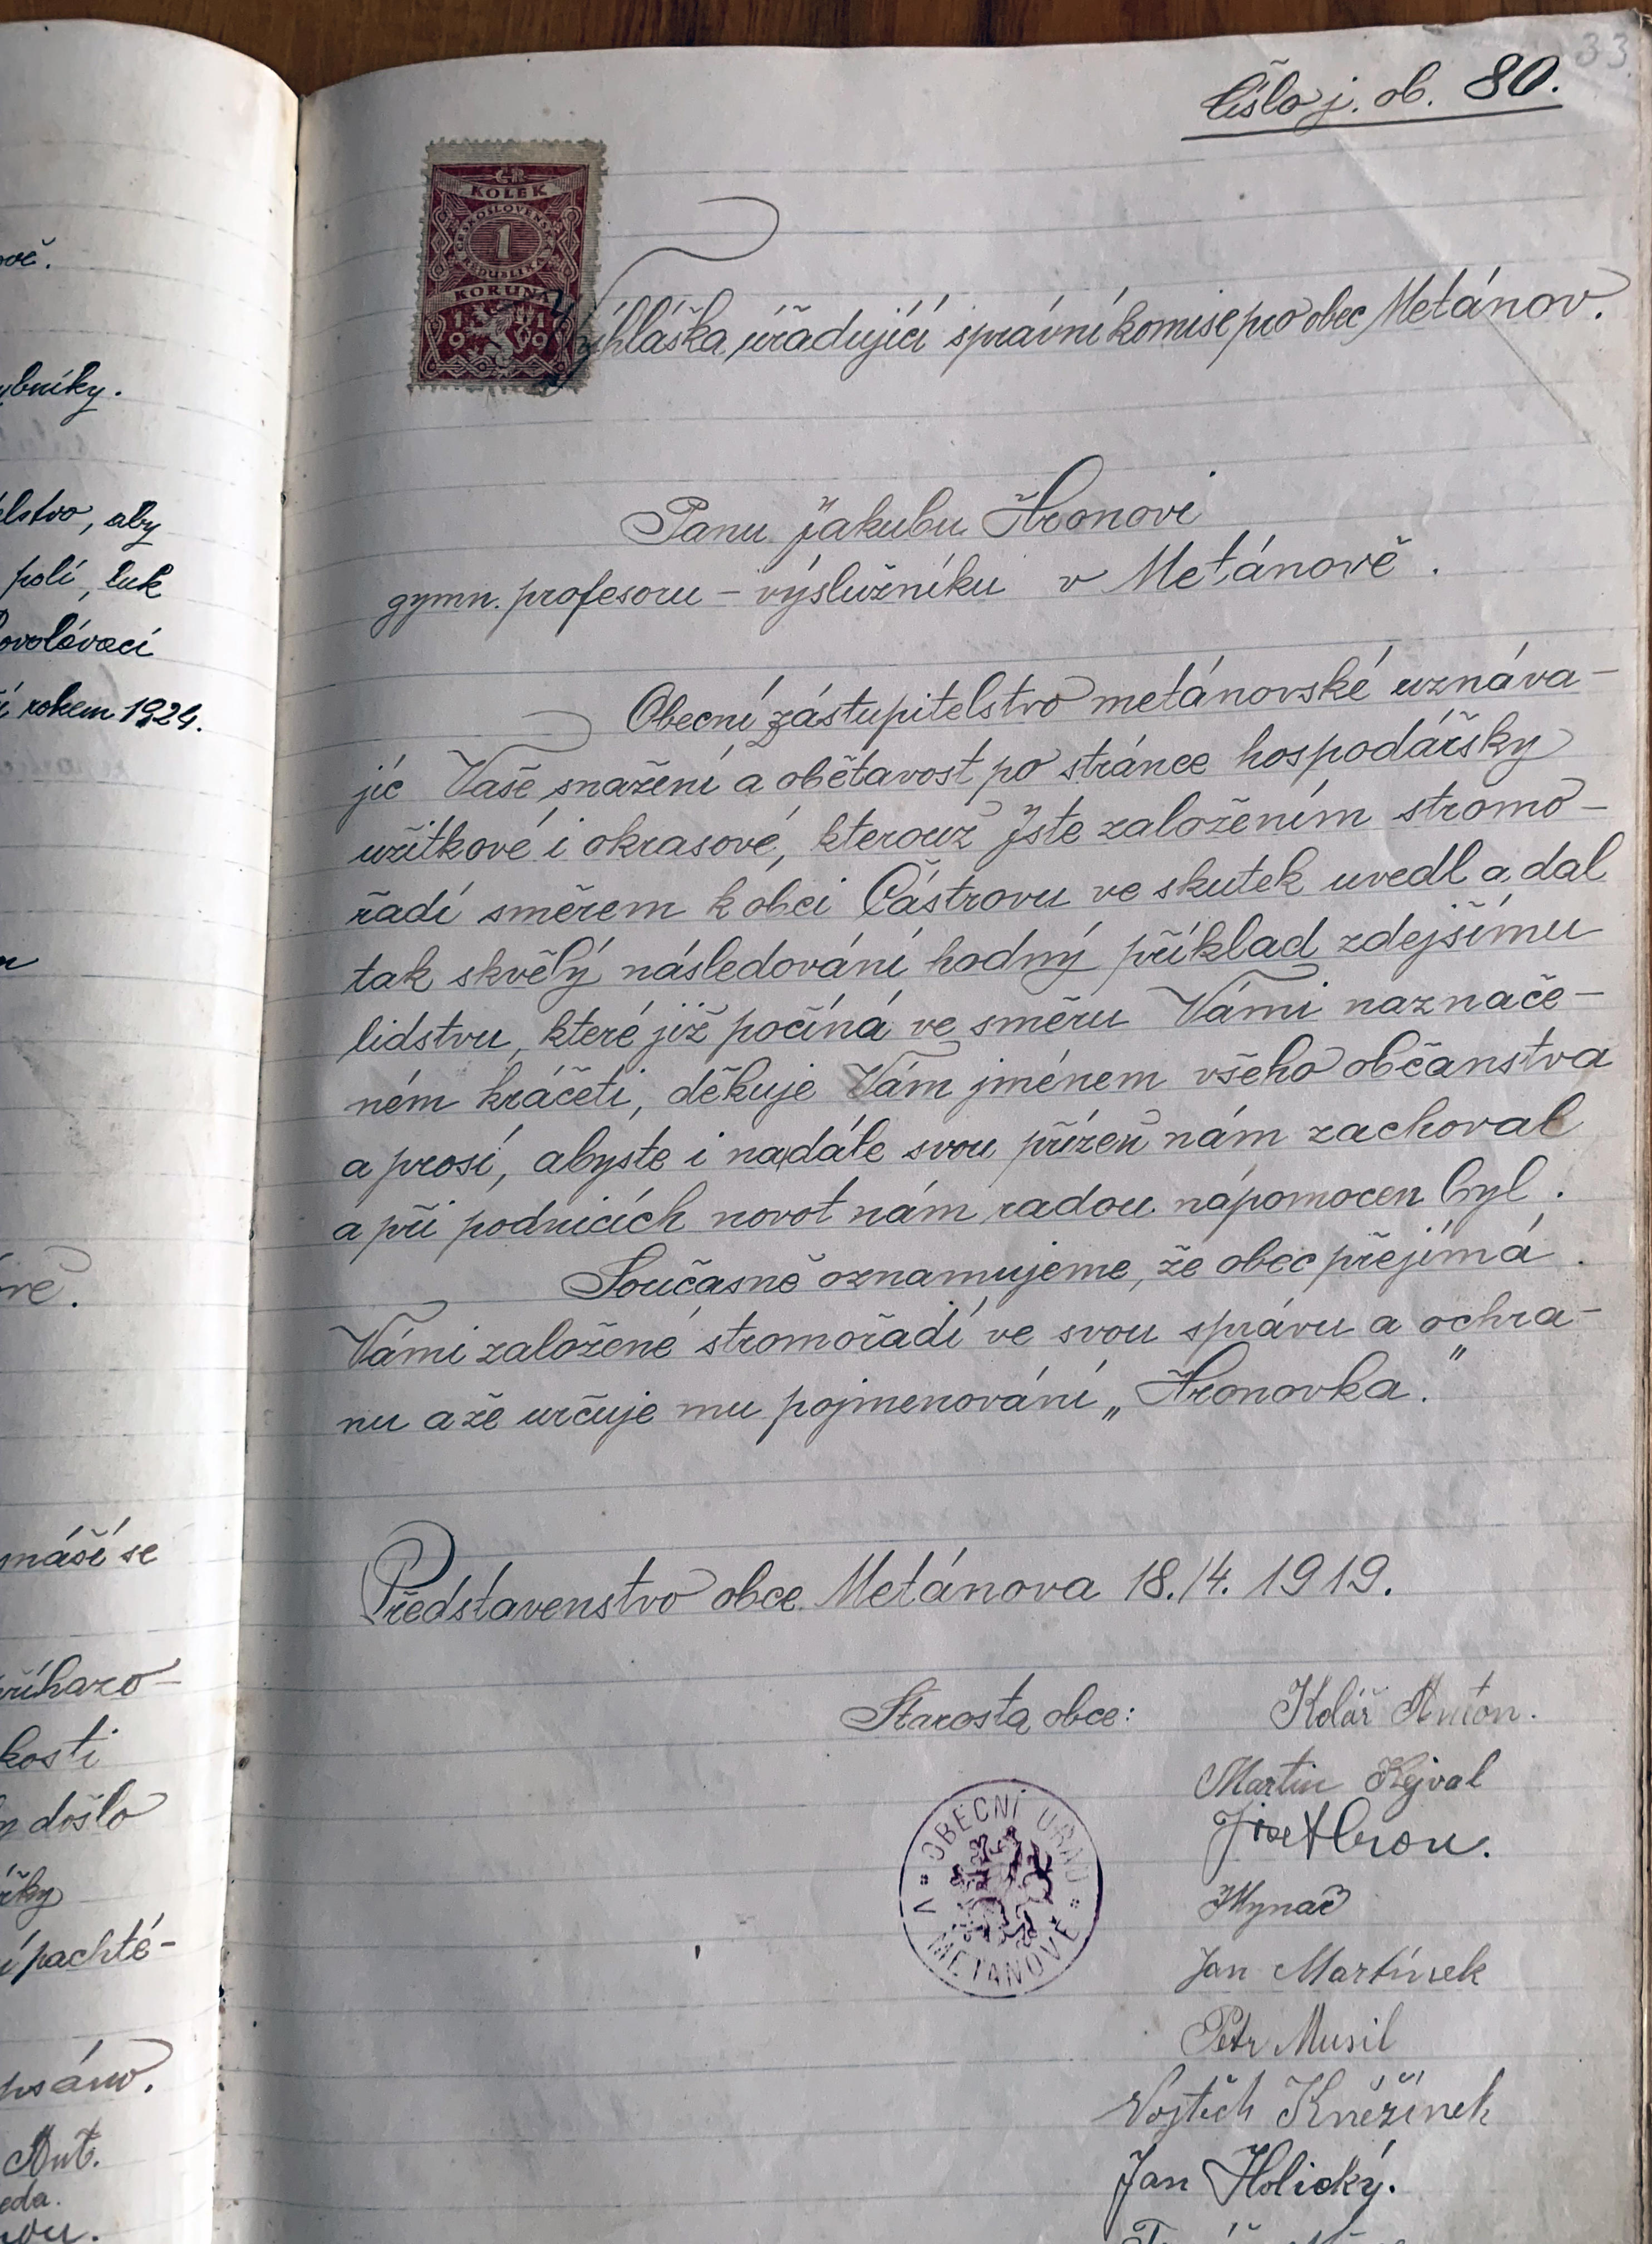 ově.
ybníky.
elstvo, aby
polí, luk
ovolávací
í rokem 1924.
ně.
máší se
říhazo-
kosti
došlo
žky
í pachtě-
psáno.
Ant.
eda.
33
Číslo j. ob. 80.
ČR
KOLEK
ČESKOSLOVENSKÁ
1
REPUBLIKA
KORUNA
1919
Vyhláška úřadující správní komise pro obec Metánov.
Panu Jakubu Hronovi
gymn. profesoru – výslužníku v Metánově.
Obecní zástupitelstvo metánovské uznáva-
jíc Vaše snažení a obětavost po stránce hospodářsky
užitkové i okrasové, kterouž Jste založením stromo-
řadí směrem k obci Částrovu ve skutek uvedl a dal
tak skvělý následování hodný příklad zdejšímu
lidstvu, které již počíná ve směru Vámi naznače-
ném kráčeti, děkuje Vám jménem všeho občanstva
a prosí, abyste i nadále svou přízeň nám zachoval
a při podnicích novot nám radou nápomocen byl.
Současně oznamujeme, že obec přejímá
Vámi založené stromořadí ve svou správu a ochra-
nu a že určuje mu pojmenování „Hronovka."
Představenstvo obce Metánova 18./4. 1919.
Starosta obce: Kolář Anton.
Martin Kejval
Hron.
OBECNÍ ÚŘAD
V METÁNOVĚ
Mynář
Jan Martínek
Petr Musil
Vojtěch Kněžínek
Jan Holický.